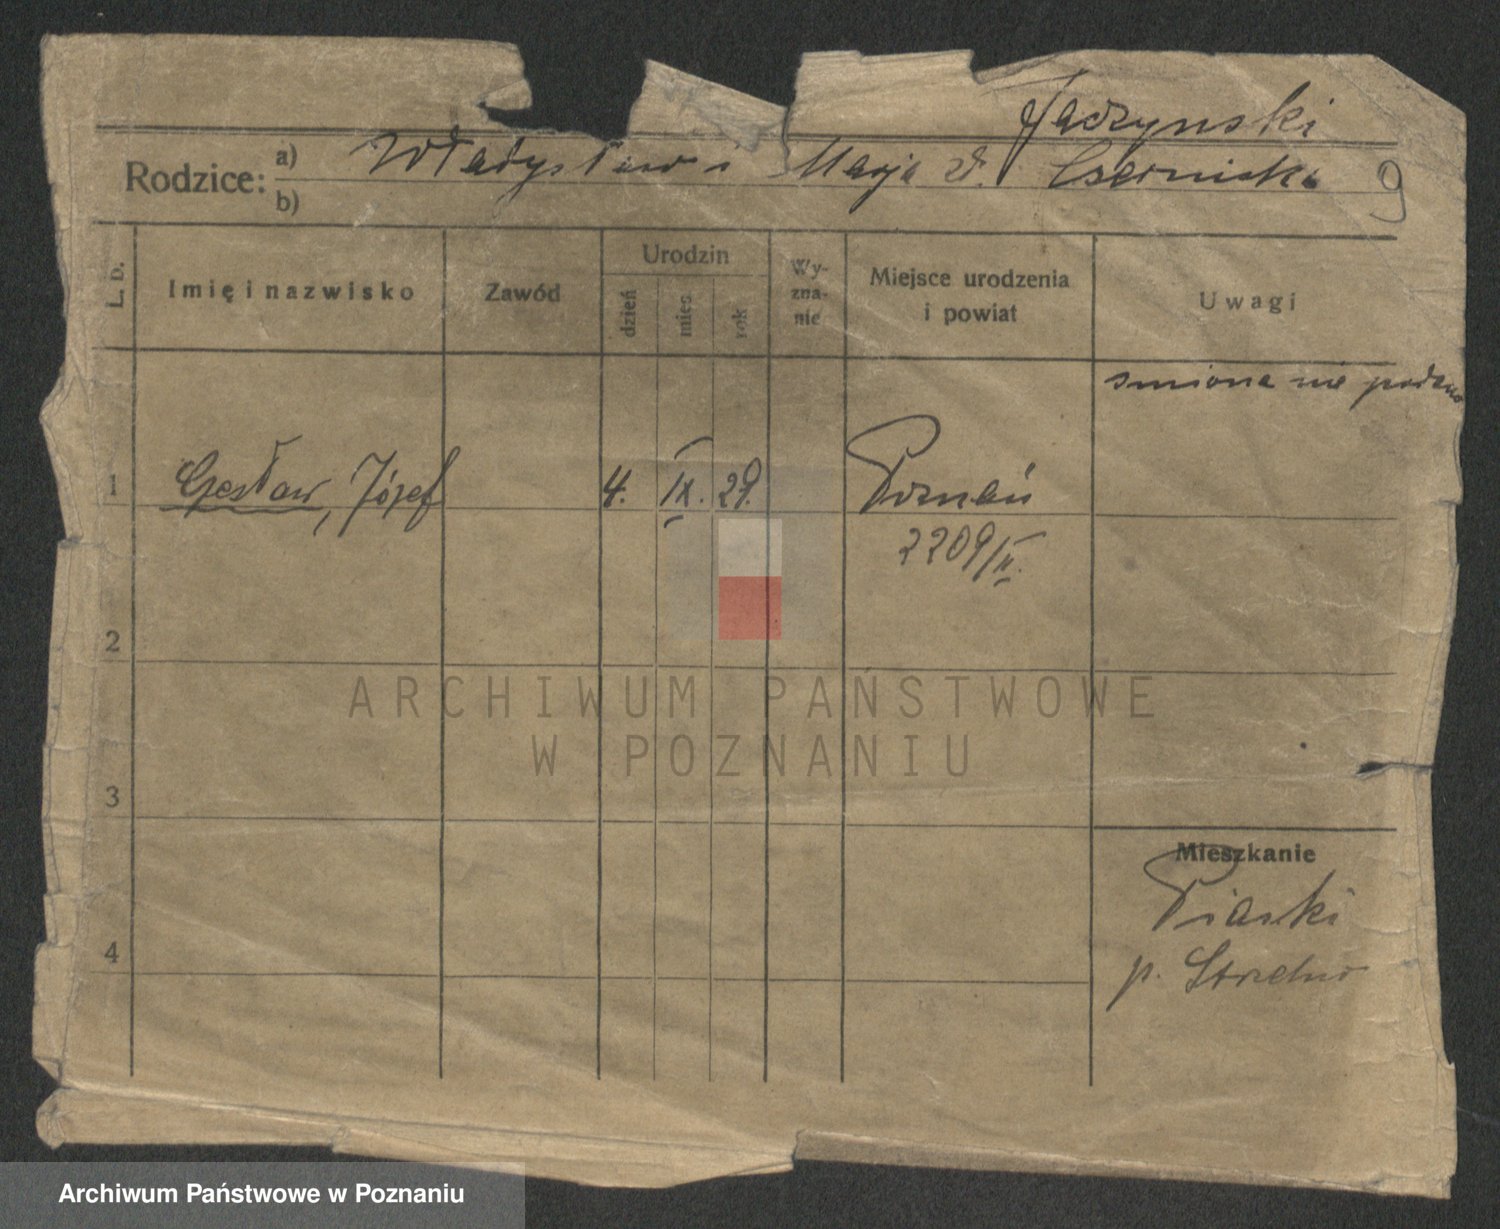 Jaczynski
Rodzice: a) Władysław i Marja d. Czerniska 9
b)
L. p.
Imię i nazwisko
Zawód
Urodzin
dzień
mies
rok
Wy-
zna-
nie
Miejsce urodzenia
i powiat
Uwagi
zmiona nie podano
1 Czesław, Józef 4. IX. 29. Poznań
2209/II.
2
3
4
Mieszkanie
Piaski
p. Strzelno
ARCHIWUM PAŃSTWOWE
W POZNANIU
Archiwum Państwowe w Poznaniu